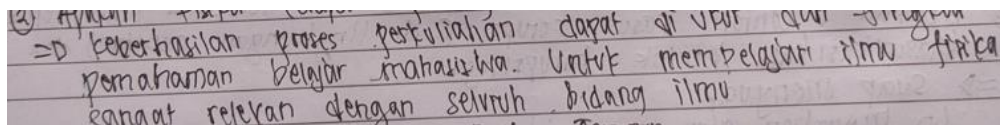 =D keberhasilan proses perkuliahan dapat di ukur dari tingkat
pemahaman belajar mahasiswa. Untuk mempelajari ilmu fisika
sangat relevan dengan seluruh bidang ilmu